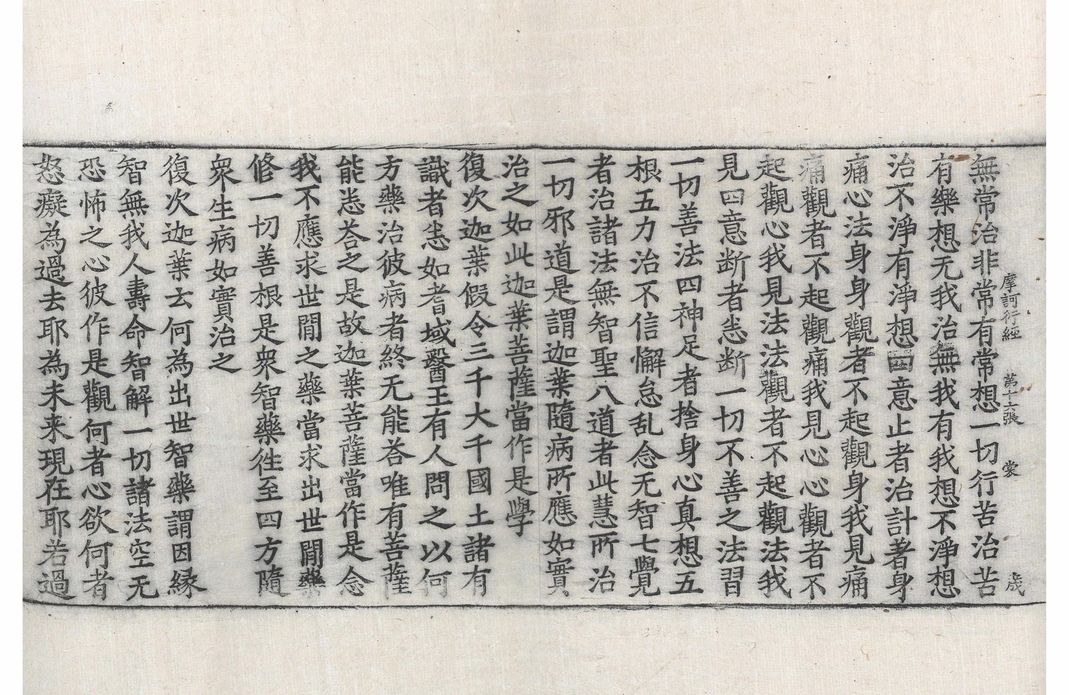 摩訶衍經 第十六張 裳
無常治非常有常想一切行苦治苦
有樂想无我治無我有我想不淨想
治不淨有淨想四意止者治計著身
痛心法身身觀者不起觀身我見痛
痛觀者不起觀痛我見心心觀者不
起觀心我見法法觀者不起觀法我
見四意断者悉断一切不善之法習
一切善法四神足者捨身心真想五
根五力治不信懈怠乱念无智七覺
者治諸法無智聖八道者此慧所治
一切邪道是謂迦葉隨病所應如實
治之如此迦葉菩薩當作是學
復次迦葉假令三千大千國土諸有
識者悉如耆域醫王有人問之以何
方藥治彼病者終无能荅唯有菩薩
能悉荅之是故迦葉菩薩當作是念
我不應求世閒之藥當求出世閒藥
修一切善根是衆智藥徃至四方隨
衆生病如實治之
復次迦葉云何為出世智藥謂因緣
智無我人壽命智解一切諸法空无
恐怖之心彼作是觀何者心欲何者
怒癡為過去耶為未来現在耶若過